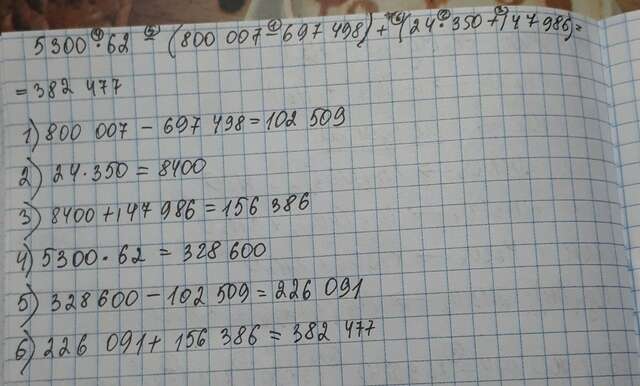 5300·62 - (800 007 - 697 498) + (24·350 + 147 986) =
= 382 477
1) 800 007 - 697 498 = 102 509
2) 24·350 = 8400
3) 8400 + 147 986 = 156 386
4) 5300·62 = 328 600
5) 328 600 - 102 509 = 226 091
6) 226 091 + 156 386 = 382 477